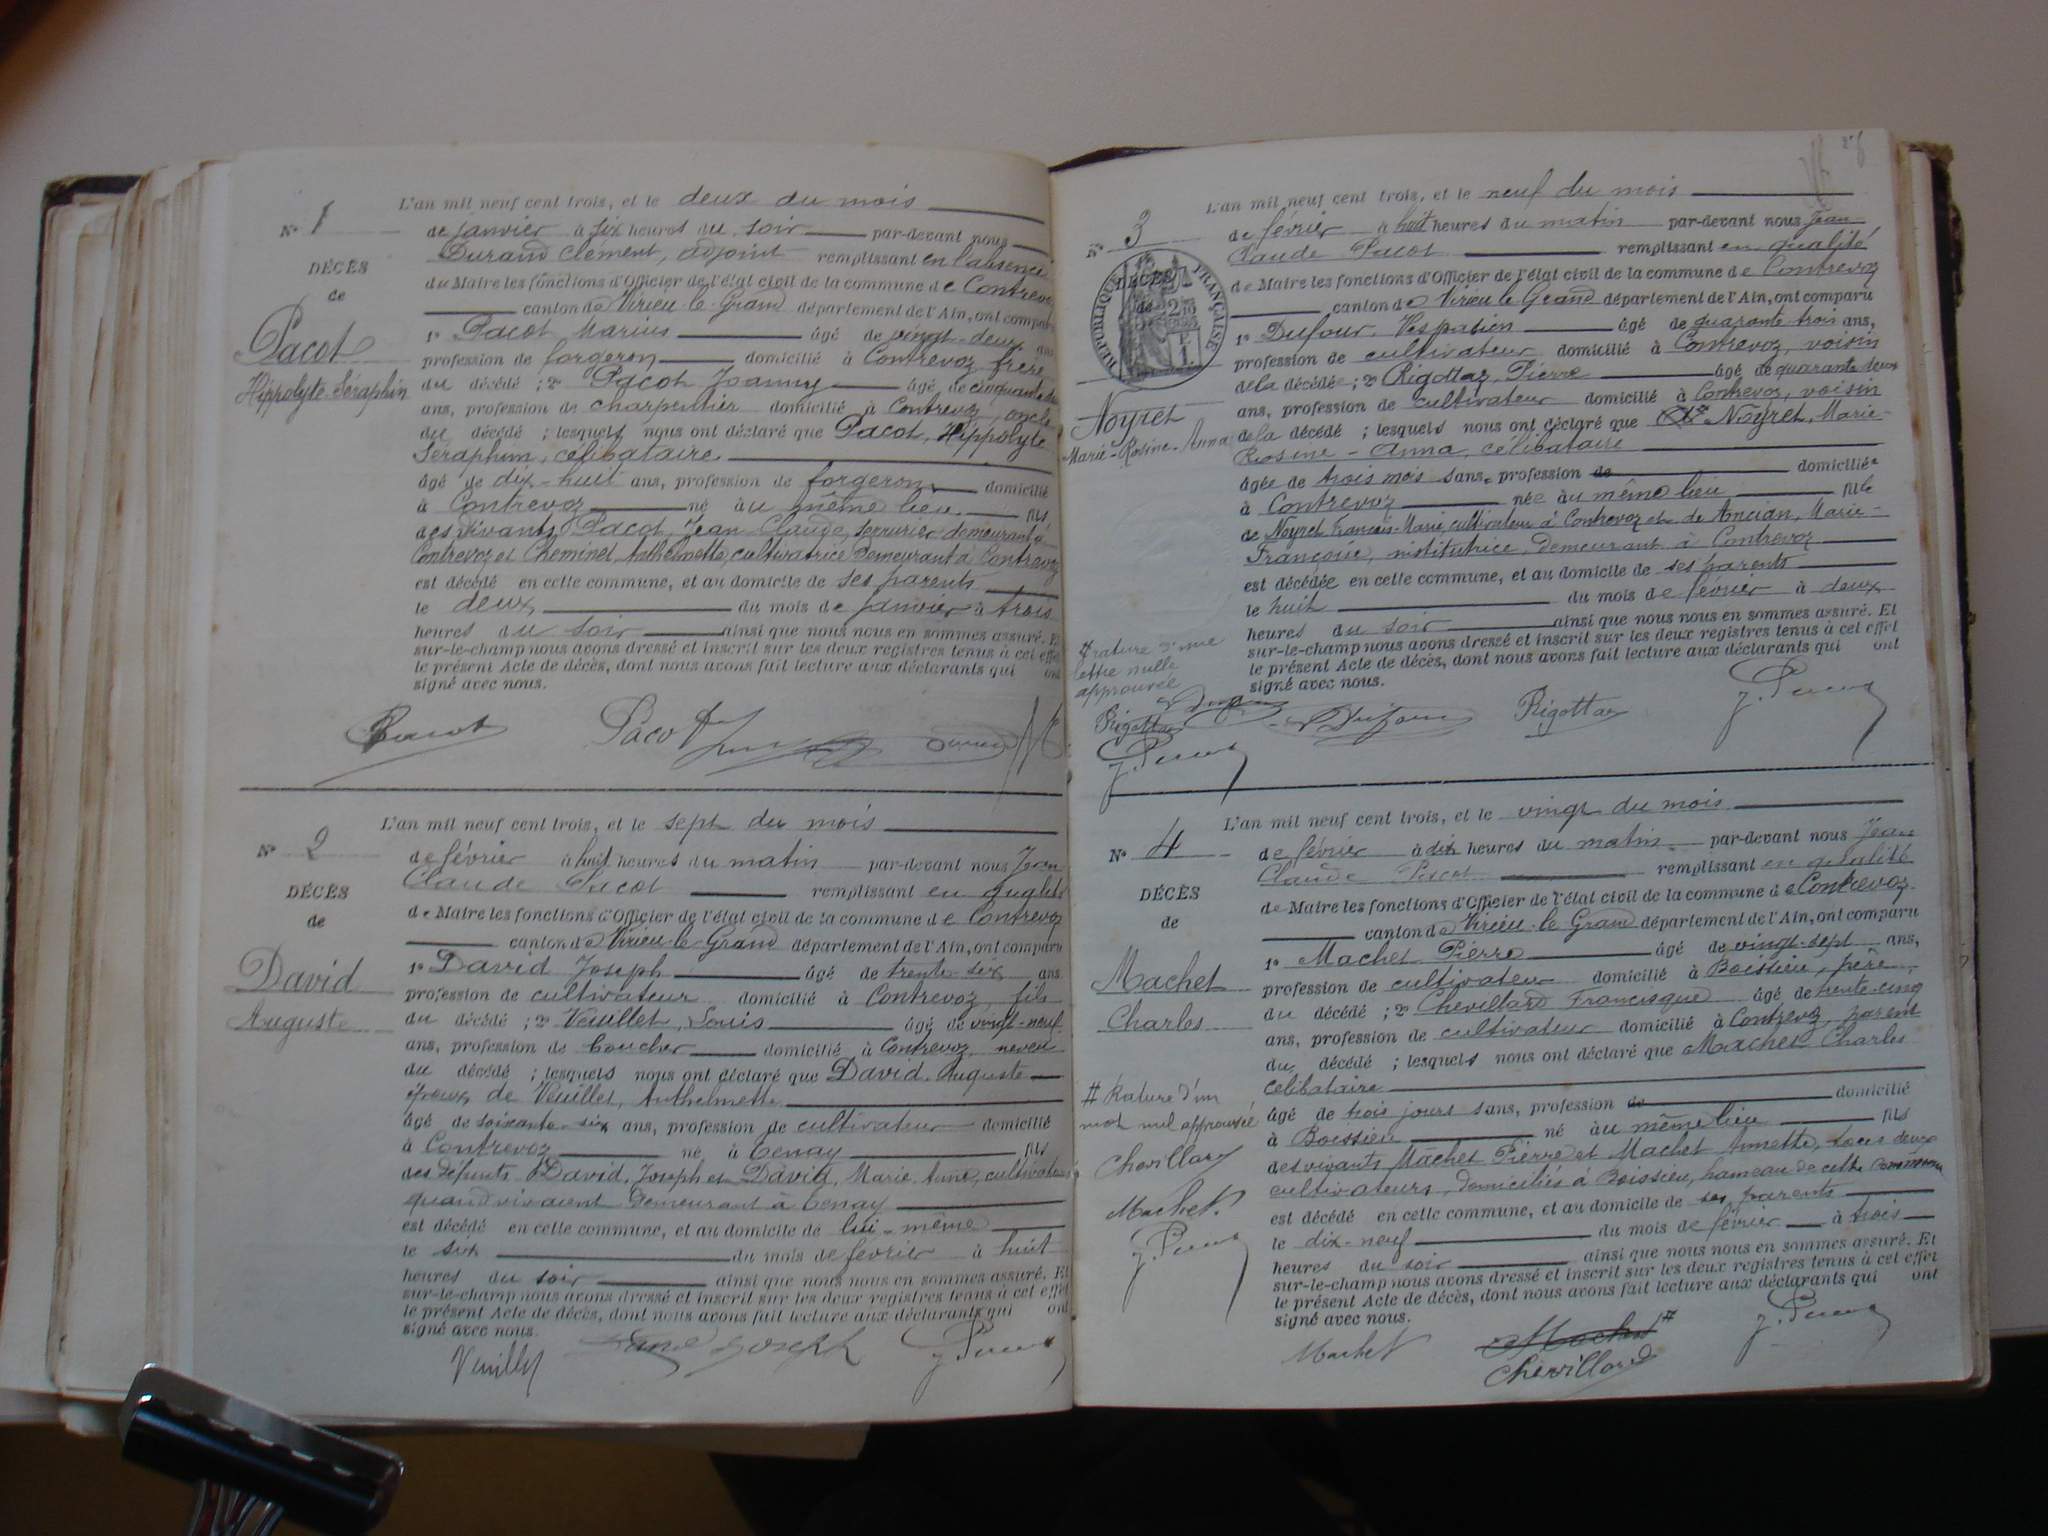 N° 1
DÉCÈS
de
Pacot
Hippolyte-Séraphin
L'an mil neuf cent trois, et le deux du mois
de janvier à six heures du soir par-devant nous
Durand Clément, adjoint remplissant en l'absence
du Maire les fonctions d'Officier de l'état civil de la commune de Contrevoz
canton de Virieu-le-Grand département de l'Ain, ont comparu
1° Pacot Marius âgé de vingt-deux ans
profession de forgeron domicilié à Contrevoz frère
du décédé ; 2° Pacot Joanny âgé de cinquante
ans, profession de charpentier domicilié à Contrevoz, oncle
du décédé ; lesquels nous ont déclaré que Pacot, Hippolyte
Séraphin, célibataire
âgé de dix-huit ans, profession de forgeron domicilié
à Contrevoz né à au même lieu fils
des vivants Pacot, Jean Claude, serrurier demeurant à
Contrevoz et Cheminet, Anthelmette, cultivatrice demeurant à Contrevoz
est décédé en cette commune, et au domicile de ses parents
le deux du mois de janvier à trois
heures du soir ainsi que nous nous en sommes assuré. Et
sur-le-champ nous avons dressé et inscrit sur les deux registres tenus à cet effet
le présent Acte de décès, dont nous avons fait lecture aux déclarants qui ont
signé avec nous.
Pacot Pacot Durand
N° 2
DÉCÈS
de
David
Auguste
L'an mil neuf cent trois, et le sept du mois
de février à huit heures du matin par-devant nous Jean
Claude Pacot remplissant en qualité
de Maire les fonctions d'Officier de l'état civil de la commune de Contrevoz
canton de Virieu-le-Grand département de l'Ain, ont comparu
1° David Joseph âgé de trente-six ans
profession de cultivateur domicilié à Contrevoz, fils
du décédé ; 2° Veuillet, Louis âgé de vingt-neuf
ans, profession de boucher domicilié à Contrevoz, neveu
du décédé ; lesquels nous ont déclaré que David, Auguste
époux de Veuillet, Anthelmette
âgé de soixante-six ans, profession de cultivateur domicilié
à Contrevoz né à Cenay fils
des défunts David, Joseph et David, Marie Anne, cultivateurs
quand vivaient demeurant à Cenay
est décédé en cette commune, et au domicile de lui-même
le six du mois de février à huit
heures du soir ainsi que nous nous en sommes assuré. Et
sur-le-champ nous avons dressé et inscrit sur les deux registres tenus à cet effet
le présent Acte de décès, dont nous avons fait lecture aux déclarants qui ont
signé avec nous.
Veuillet David Joseph J. Pacot
N° 3
DÉCÈS
de
RÉPUBLIQUE FRANÇAISE
Noyret
Marie-Rosine-Anna
L'an mil neuf cent trois, et le neuf du mois
de février à huit heures du matin par-devant nous Jean
Claude Pacot remplissant en qualité
de Maire les fonctions d'Officier de l'état civil de la commune de Contrevoz
canton de Virieu le Grand département de l'Ain, ont comparu
1° Dufour, Vespasien âgé de quarante-trois ans,
profession de cultivateur domicilié à Contrevoz, voisin
de la décédée ; 2° Rigottaz, Pierre âgé de quarante-deux
ans, profession de cultivateur domicilié à Contrevoz, voisin
de la décédé ; lesquels nous ont déclaré que Noyret, Marie-
Rosine-Anna, célibataire
âgée de trois mois sans profession de domiciliée
à Contrevoz née à au même lieu fille
de Noyret François-Marie, cultivateur à Contrevoz et de Ancian, Marie-
Françoise, institutrice, demeurant à Contrevoz
est décédée en cette commune, et au domicile de ses parents
le huit du mois de février à deux
heures du soir ainsi que nous nous en sommes assuré. Et
sur-le-champ nous avons dressé et inscrit sur les deux registres tenus à cet effet
le présent Acte de décès, dont nous avons fait lecture aux déclarants qui ont
signé avec nous.
# rature d'une
lettre nulle
approuvée
Rigottaz Dufour
J. Pacot
Dufour Rigottaz J. Pacot
N° 4
DÉCÈS
de
Machet
Charles
L'an mil neuf cent trois, et le vingt du mois
de février à dix heures du matin par-devant nous Jean
Claude Pacot remplissant en qualité
de Maire les fonctions d'Officier de l'état civil de la commune de Contrevoz
canton de Virieu-le-Grand département de l'Ain, ont comparu
1° Machet Pierre âgé de vingt-sept ans,
profession de cultivateur domicilié à Boissieu, père
du décédé ; 2° Chevillard Francisque âgé de trente-cinq
ans, profession de cultivateur domicilié à Contrevoz, parent
du décédé ; lesquels nous ont déclaré que Machet Charles
célibataire
âgé de trois jours sans, profession de domicilié
à Boissieu né à au même lieu fils
des vivants Machet Pierre et Machet Annette, tous deux
cultivateurs, domiciliés à Boissieu, hameau de cette commune
est décédé en cette commune, et au domicile de ses parents
le dix-neuf du mois de février à trois
heures du soir ainsi que nous nous en sommes assuré. Et
sur-le-champ nous avons dressé et inscrit sur les deux registres tenus à cet effet
le présent Acte de décès, dont nous avons fait lecture aux déclarants qui ont
signé avec nous.
# Rature d'un
mot nul approuvée
Chevillard
Machet
J. Pacot
Machet Machet # J. Pacot
Chevillard